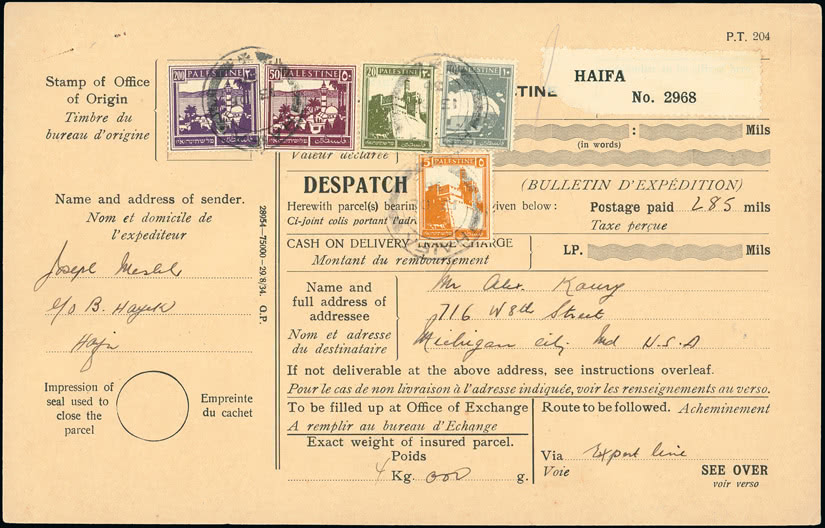 P.T. 204
Stamp of Office
of Origin
Timbre du
bureau d'origine
200 PALESTINE ٢٠٠
50 PALESTINE ٥٠
20 PALESTINE ٢٠
PALESTINE ١٠
5 PALESTINE ٥
فلسطين
פלשתינה א״י
TINE
HAIFA
No. 2968
: Mils
(in words)
Valeur déclarée
DESPATCH
(BULLETIN D'EXPÉDITION)
Herewith parcel(s) bearin given below:
Ci-joint colis portant l'adr
Postage paid 285 mils
Taxe perçue
CASH ON DELIVERY TRADE CHARGE
Montant du remboursement
LP. Mils
Name and address of sender.
Nom et domicile de
l'expediteur
Joseph
c/o B. Hayek
Haifa
28/54—75000—29/8/34. G.P.
Name and
full address of
addressee
Nom et adresse
du destinataire
Mr Alex. Koury
716 W 8th Street
Michigan city Ind U.S.A
If not deliverable at the above address, see instructions overleaf.
Pour le cas de non livraison à l'adresse indiquée, voir les renseignements au verso.
Impression of
seal used to
close the
parcel
Empreinte
du cachet
To be filled up at Office of Exchange
A remplir au bureau d'Echange
Exact weight of insured parcel.
Poids
4 Kg. 000 g.
Route to be followed. Acheminement
Via Export line
Voie
SEE OVER
voir verso